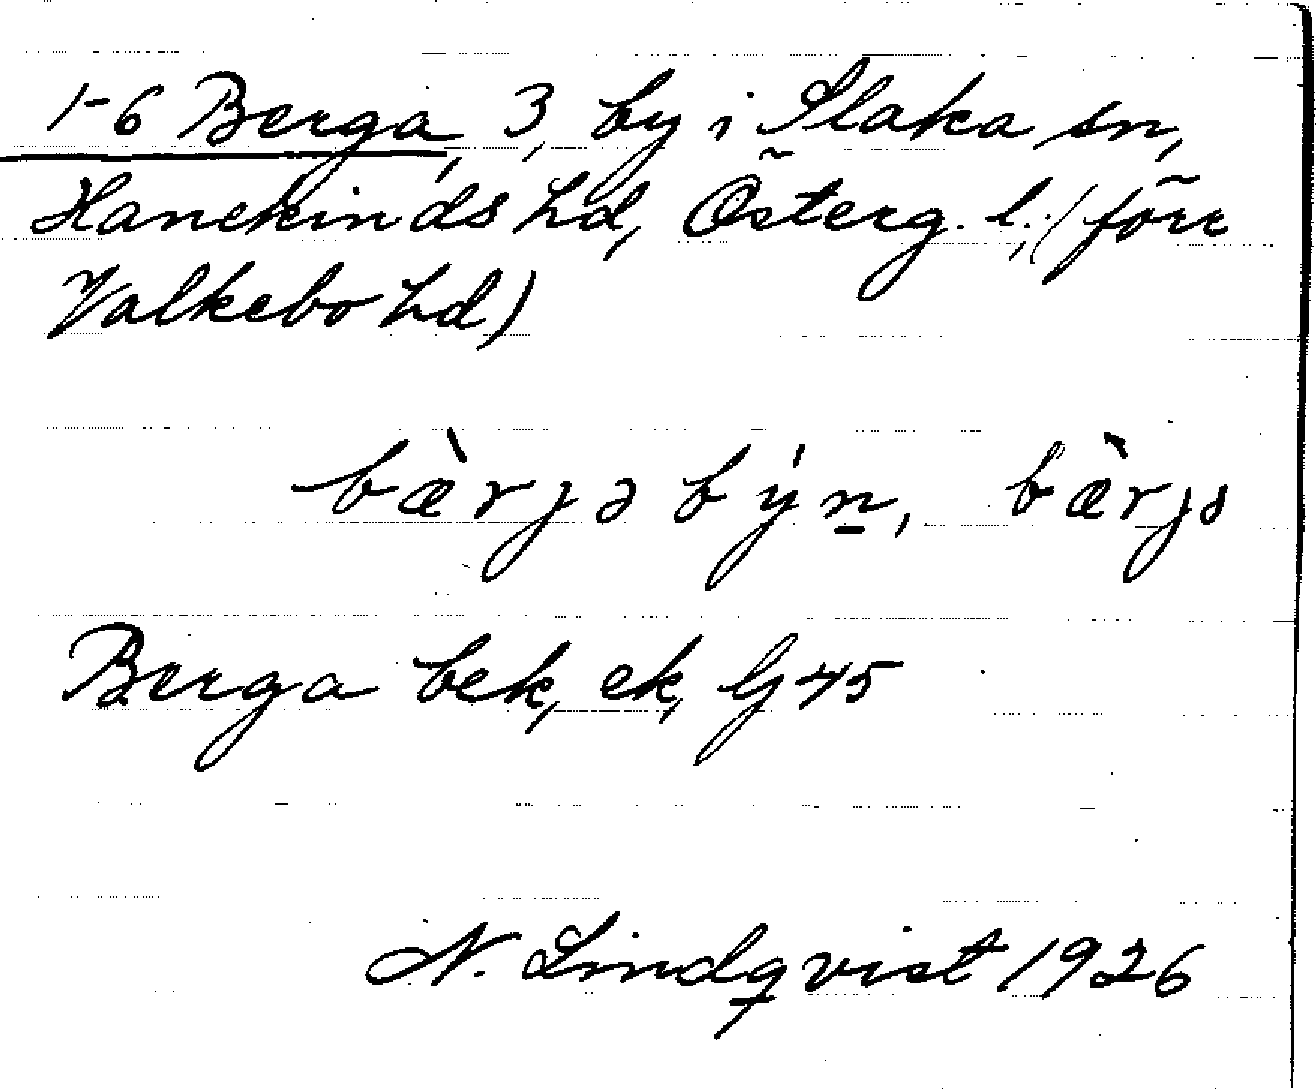 1-6 Berga, 3, by i Slaka sn,
Hanekinds hd, Österg. l., (förr
Valkebo hd)
bæ̀rjə býn̲, bæ̀rjə
Berga bek, ek, Gj 45
N. Lindqvist 1926